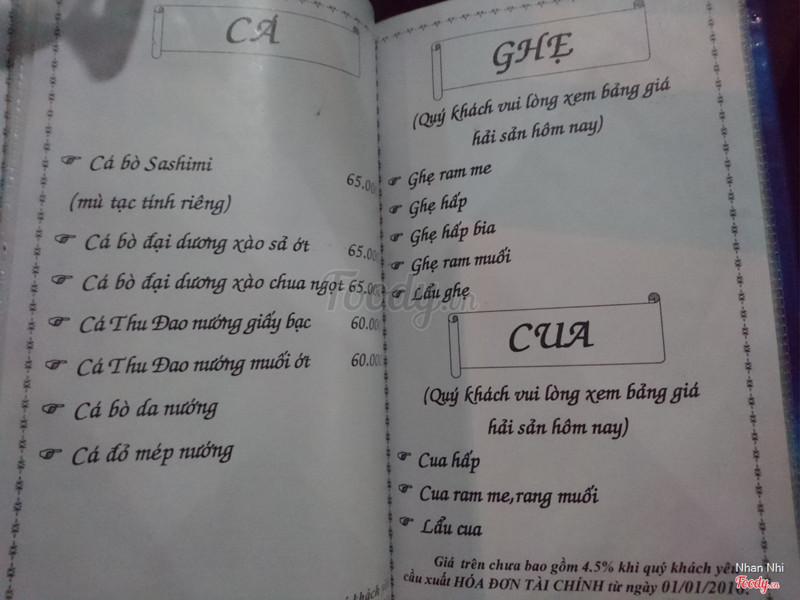 CÁ
Cá bò Sashimi 65.00
(mù tạc tính riêng)
Cá bò đại dương xào sả ớt 65.00
Cá bò đại dương xào chua ngọt 65.00
Cá Thu Đao nướng giấy bạc 60.00
Cá Thu Đao nướng muối ớt 60.00
Cá bò da nướng
Cá đỏ mép nướng
GHẸ
(Quý khách vui lòng xem bảng giá
hải sản hôm nay)
Ghẹ ram me
Ghẹ hấp
Ghẹ hấp bia
Ghẹ ram muối
Lẩu ghẹ
CUA
(Quý khách vui lòng xem bảng giá
hải sản hôm nay)
Cua hấp
Cua ram me,rang muối
Lẩu cua
Giá trên chưa bao gồm 4.5% khi quý khách yêu
cầu xuất HÓA ĐƠN TÀI CHÍNH từ ngày 01/01/2016.
Foody.vn
Nhan Nhi
Foody.vn